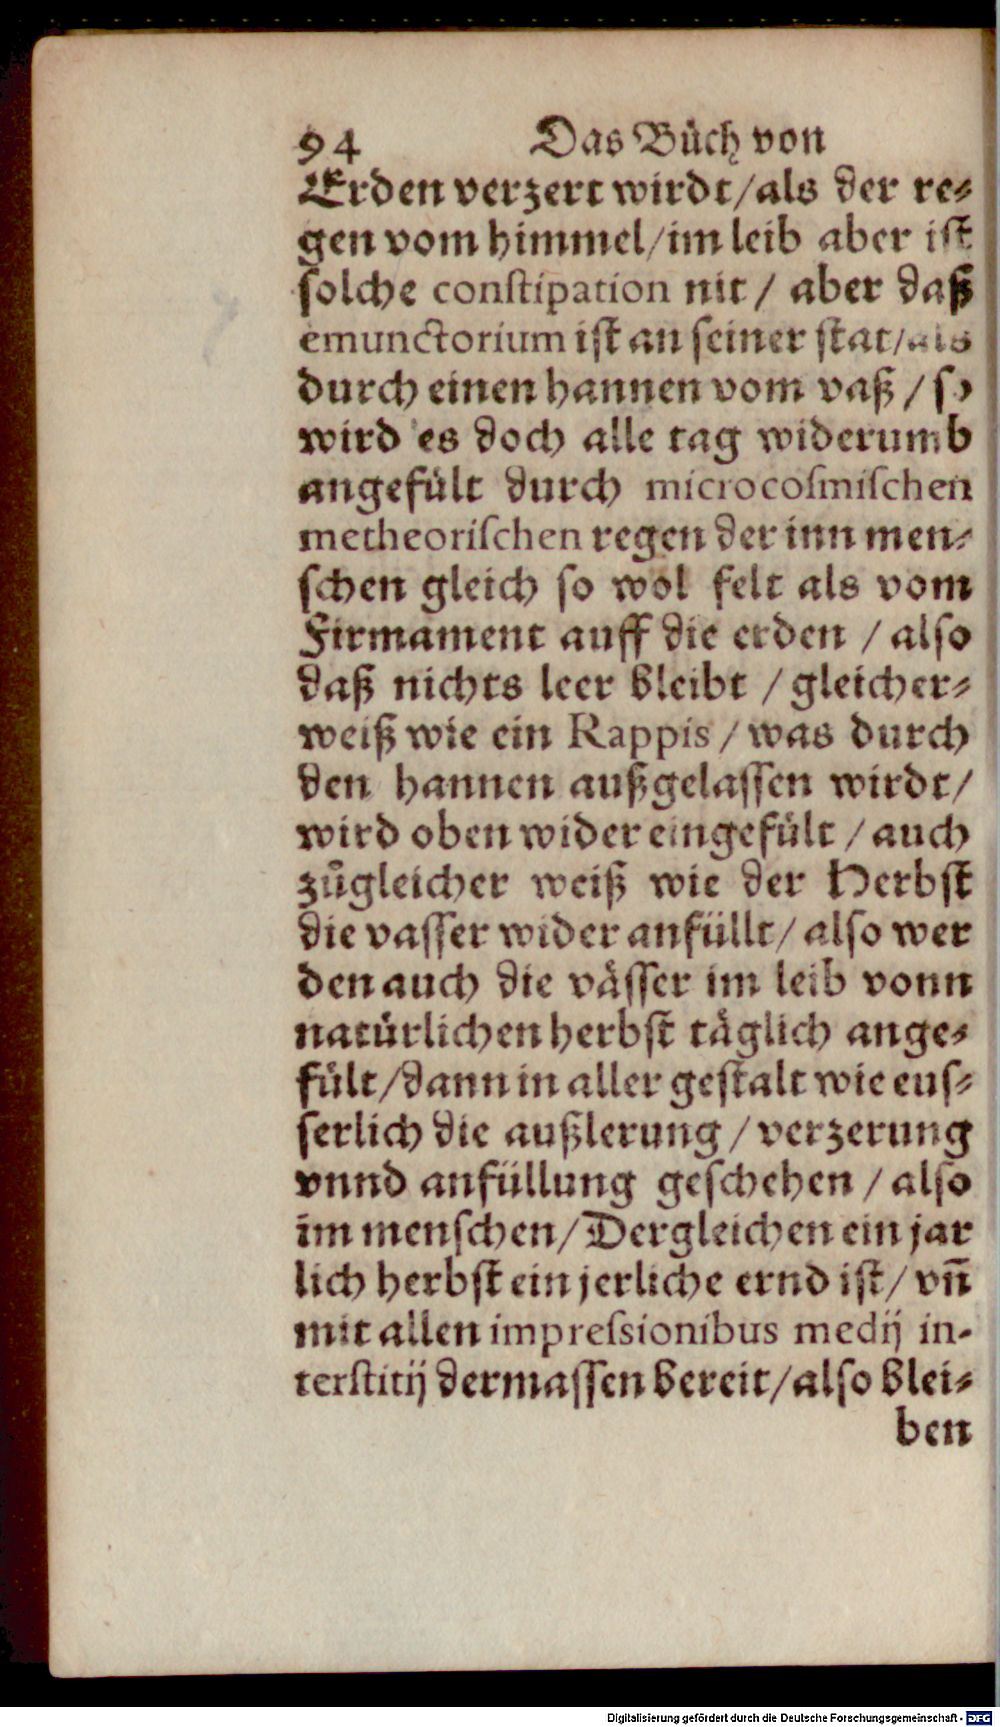 94 Das Bůch von
Erden verzert wirdt/als der re⸗
gen vom himmel/im leib aber ist
solche constipation nit / aber daß
emunctorium ist an seiner stat/als
durch einen hannen vom vaß / so
wird es doch alle tag widerumb
angefült durch microcosmischen
metheorischen regen der inn men⸗
schen gleich so wol felt als vom
Firmament auff die erden / also
daß nichts leer bleibt / gleicher⸗
weiß wie ein Rappis / was durch
den hannen außgelassen wirdt/
wird oben wider eingefült / auch
zůgleicher weiß wie der Herbst
die vasser wider anfüllt/ also wer
den auch die vässer im leib vonn
natürlichen herbst täglich ange⸗
fült/dann in aller gestalt wie eus⸗
serlich die außlerung / verzerung
vnnd anfüllung geschehen / also
im menschen/Dergleichen ein jar
lich herbst ein jerliche ernd ist/ vñ
mit allen impressionibus medij in-
terstitij dermassen bereit/also blei⸗
ben
Digitalisierung gefördert durch die Deutsche Forschungsgemeinschaft - DFG